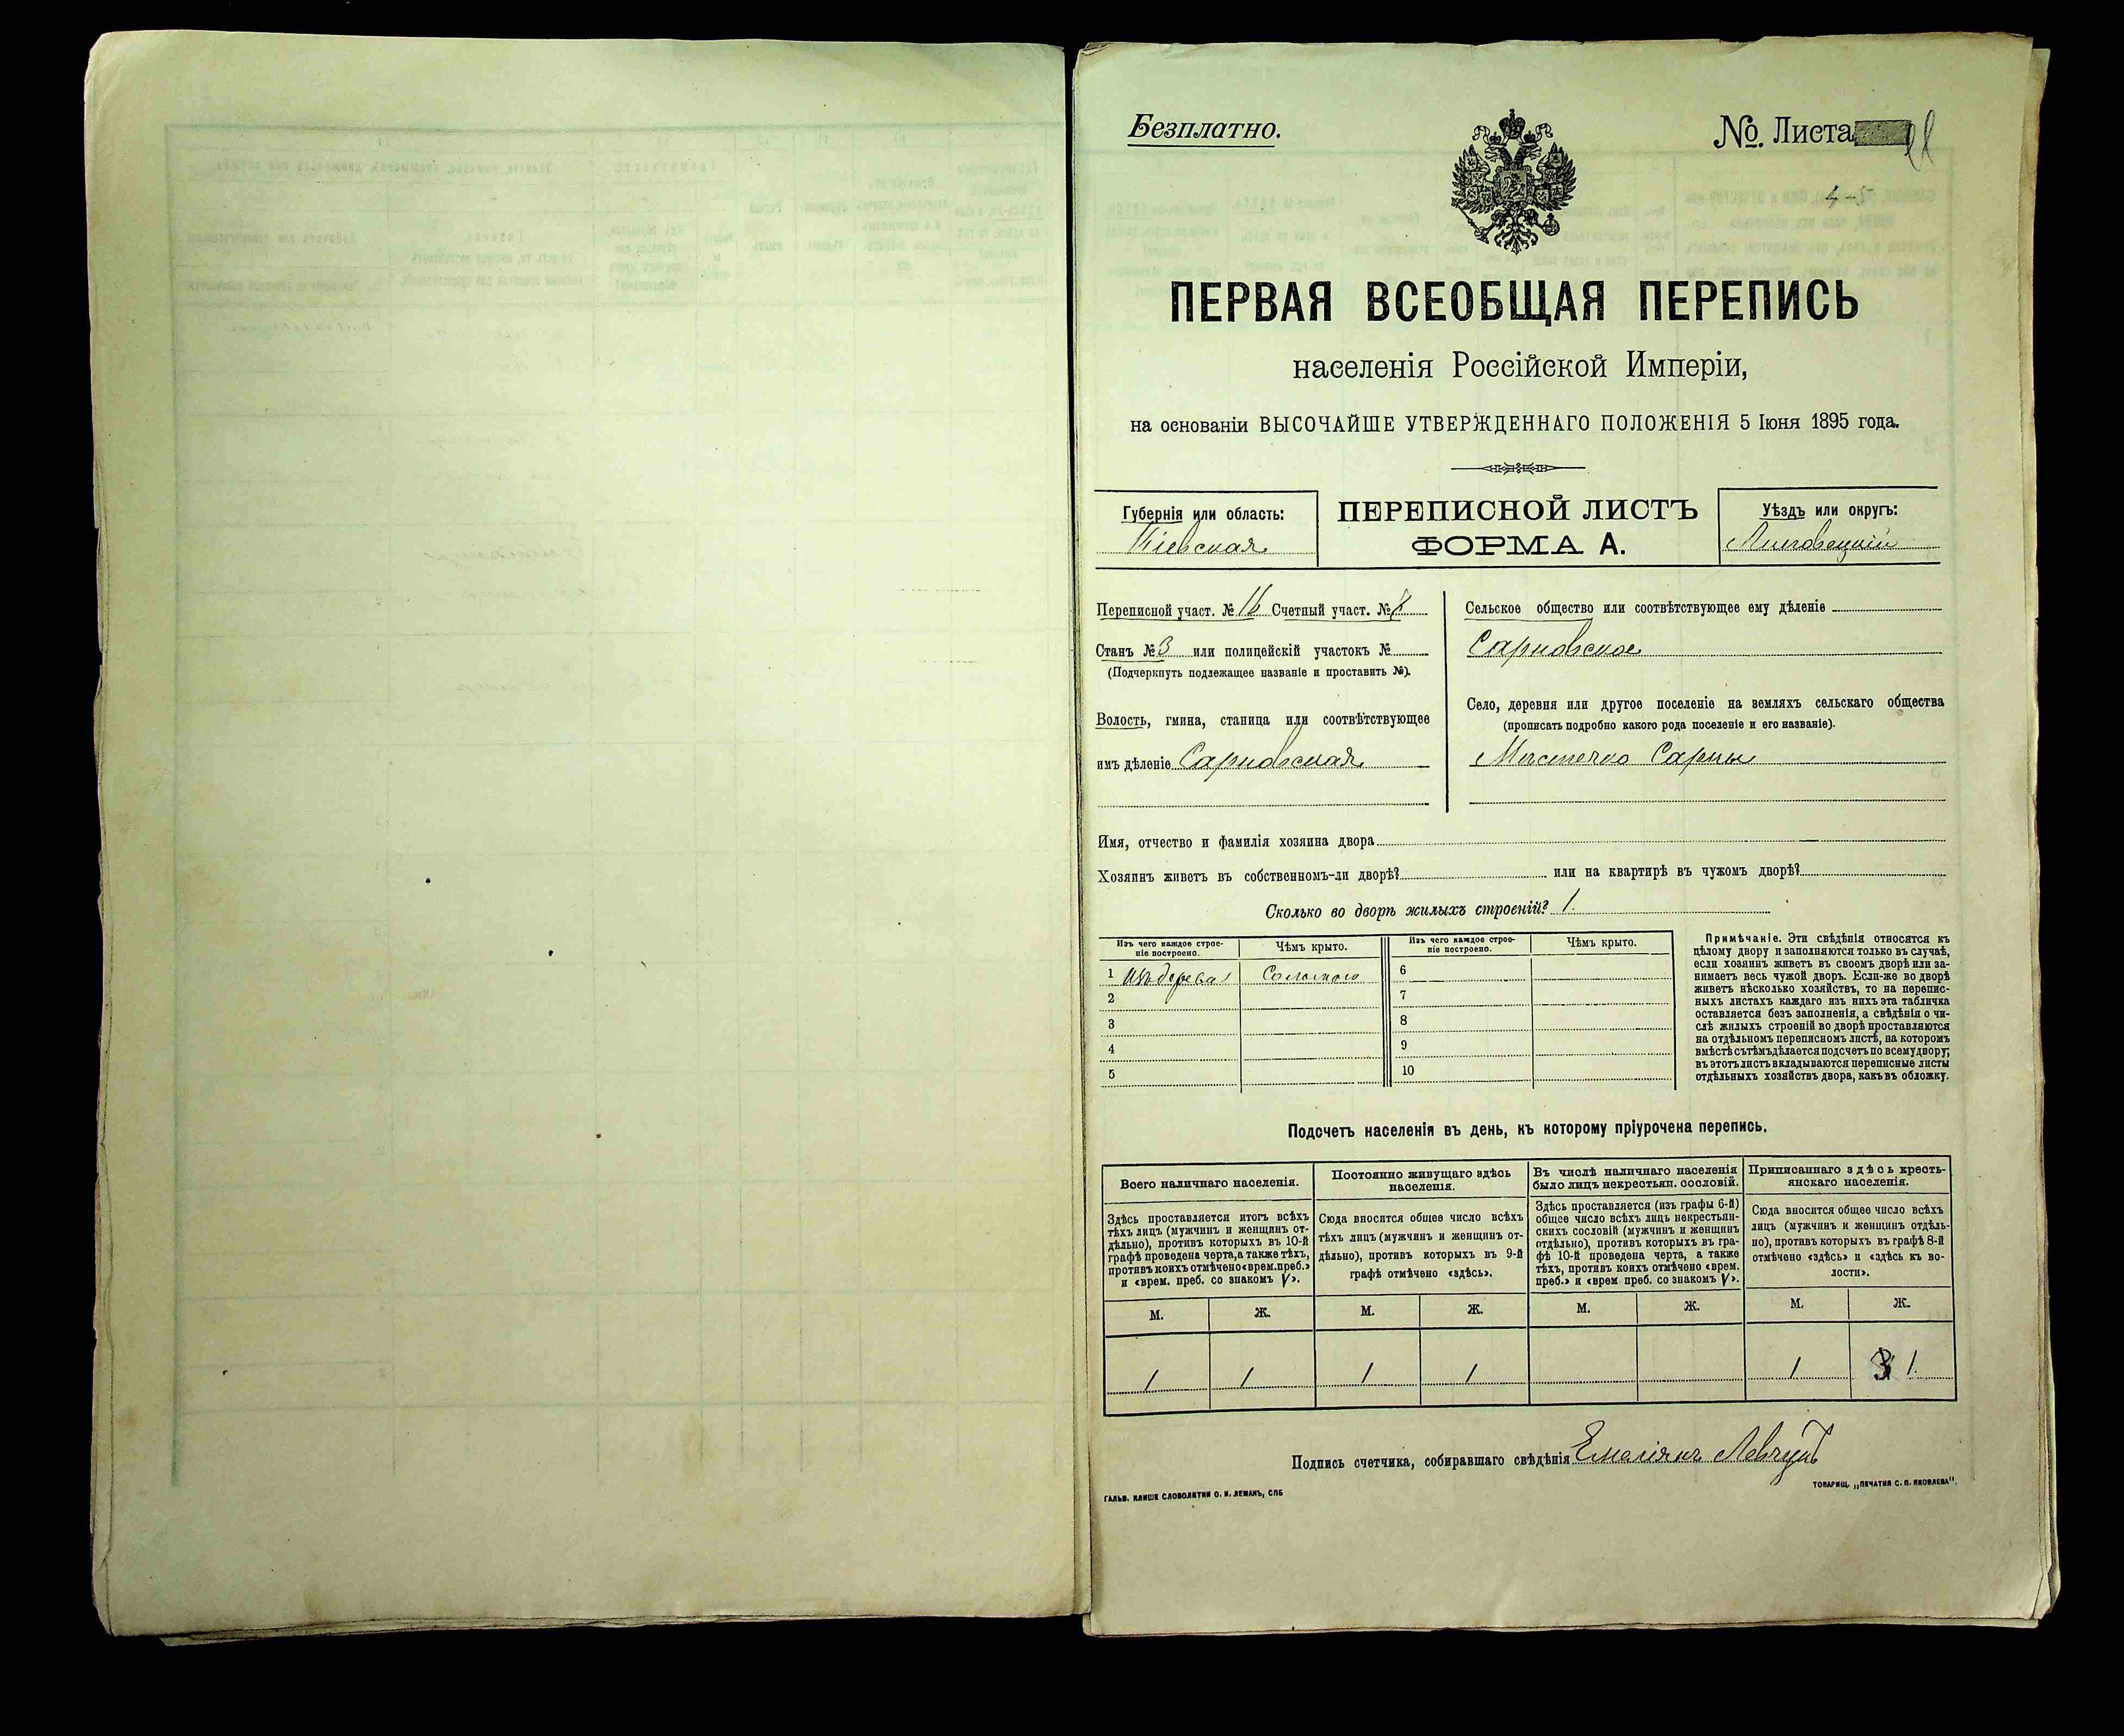 Безплатно.
№. Листа
4-5
ПЕРВАЯ ВСЕОБЩАЯ ПЕРЕПИСЬ
населенія Россійской Имперіи,
на основаніи ВЫСОЧАЙШЕ УТВЕРЖДЕННАГО ПОЛОЖЕНІЯ 5 Іюня 1895 года.
Губернія или область:
Кіевская
ПЕРЕПИСНОЙ ЛИСТЪ
ФОРМА А.
Уѣздъ или округъ:
Липовецкій
Переписной участ. № 16 Счетный участ. №
Станъ № 3 или полицейскій участокъ №
(Подчеркнуть подлежащее названіе и проставить №).
Волость, гмина, станица или соотвѣтствующее
имъ дѣленіе Сарновская
Сельское общество или соотвѣтствующее ему дѣленіе
Сарновское
Село, деревня или другое поселеніе на земляхъ сельскаго общества
(прописать подробно какого рода поселеніе и его названіе).
Мѣстечко Сарны
Имя, отчество и фамилія хозяина двора
Хозяинъ живетъ въ собственномъ-ли дворѣ? или на квартирѣ въ чужомъ дворѣ?
Сколько во дворѣ жилыхъ строеній? 1.
Изъ чего каждое строе-
ніе построено.
Чѣмъ крыто.
Изъ чего каждое строе-
ніе построено.
Чѣмъ крыто.
1 Изъ дерева Соломою 6
2 7
3 8
4 9
5 10
Примѣчаніе. Эти свѣдѣнія относятся къ
цѣлому двору и заполняются только въ случаѣ,
если хозяинъ живетъ въ своемъ дворѣ или за-
нимаетъ весь чужой дворъ. Если-же во дворѣ
живетъ нѣсколько хозяйствъ, то на перепис-
ныхъ листахъ каждаго изъ нихъ эта табличка
оставляется безъ заполненія, а свѣдѣнія о чи-
слѣ жилыхъ строеній во дворѣ проставляются
на отдѣльномъ переписномъ листѣ, на которомъ
вмѣстѣ съ тѣмъ дѣлается подсчетъ по всему двору;
въ этотъ листъ вкладываются переписные листы
отдѣльныхъ хозяйствъ двора, какъ въ обложку.
Подсчетъ населенія въ день, къ которому пріурочена перепись.
Всего наличнаго населенія.
Здѣсь проставляется итогъ всѣхъ
тѣхъ лицъ (мужчинъ и женщинъ от-
дѣльно), противъ которыхъ въ 10-й
графѣ проведена черта, а также тѣхъ,
противъ коихъ отмѣчено «врем. преб.»
и «врем. преб. со знакомъ V».
Постоянно живущаго здѣсь
населенія.
Сюда вносится общее число всѣхъ
тѣхъ лицъ (мужчинъ и женщинъ от-
дѣльно), противъ которыхъ въ 9-й
графѣ отмѣчено «здѣсь».
Въ числѣ наличнаго населенія
было лицъ некрестьян. сословій.
Здѣсь проставляется (изъ графы 6-й)
общее число всѣхъ лицъ некрестьян-
скихъ сословій (мужчинъ и женщинъ
отдѣльно), противъ которыхъ въ гра-
фѣ 10-й проведена черта, а также
тѣхъ, противъ коихъ отмѣчено «врем.
преб.» и «врем преб. со знакомъ V».
Приписаннаго здѣсь кресть-
янскаго населенія.
Сюда вносится общее число всѣхъ
лицъ (мужчинъ и женщинъ отдѣль-
но), противъ которыхъ въ графѣ 8-й
отмѣчено «здѣсь» и «здѣсь къ во-
лости».
М. Ж. М. Ж. М. Ж. М. Ж.
1 1 1 1 1 1.
Подпись счетчика, собиравшаго свѣдѣнія Емеліянъ Левчукъ
ГАЛЬВ. КЛИШЕ СЛОВОЛИТНИ О. И. ЛЕМАНЪ, СПБ
ТОВАРИЩ. „ПЕЧАТНЯ С. П. ЯКОВЛЕВА".